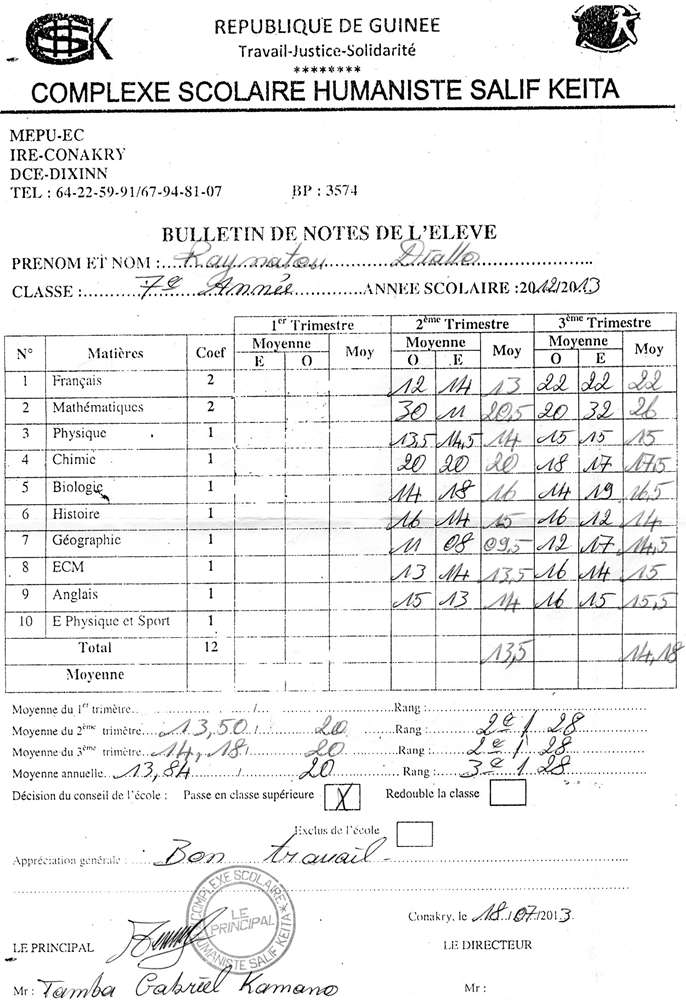 CSHSK
REPUBLIQUE DE GUINEE
Travail-Justice-Solidarité
********
COMPLEXE SCOLAIRE HUMANISTE SALIF KEITA
MEPU-EC
IRE-CONAKRY
DCE-DIXINN
TEL : 64-22-59-91/67-94-81-07 BP : 3574
BULLETIN DE NOTES DE L'ELEVE
PRENOM ET NOM : Raynatou Diallo
CLASSE : 7e Année ANNEE SCOLAIRE :2012/2013
1er Trimestre 2ème Trimestre 3ème Trimestre
N° Matières Coef Moyenne Moy Moyenne Moy Moyenne Moy
E O O E O E
1 Français 2 12 14 13 22 22 22
2 Mathématiques 2 30 11 20,5 20 32 26
3 Physique 1 13,5 14,5 14 15 15 15
4 Chimie 1 20 20 20 18 17 17,5
5 Biologie 1 14 18 16 14 19 16,5
6 Histoire 1 16 14 15 16 12 14
7 Géographie 1 11 08 09,5 12 17 14,5
8 ECM 1 13 14 13,5 16 14 15
9 Anglais 1 15 13 14 16 15 15,5
10 E Physique et Sport 1
Total 12 13,5 14,18
Moyenne
Moyenne du 1er trimètre / Rang :
Moyenne du 2ème trimètre 13,50 / 20 Rang : 2e / 28
Moyenne du 3ème trimètre 14,18 / 20 Rang : 2e / 28
Moyenne annuelle 13,84 / 20 Rang : 3e / 28
Décision du conseil de l'école : Passe en classe supérieure X Redouble la classe
Exclus de l'école
Appréciation générale : Bon travail
COMPLEXE SCOLAIRE HUMANISTE SALIF KEITA
LE PRINCIPAL
Conakry, le 18/07/2013.
LE PRINCIPAL LE DIRECTEUR
Mr : Tamba Gabriel Kamano Mr :